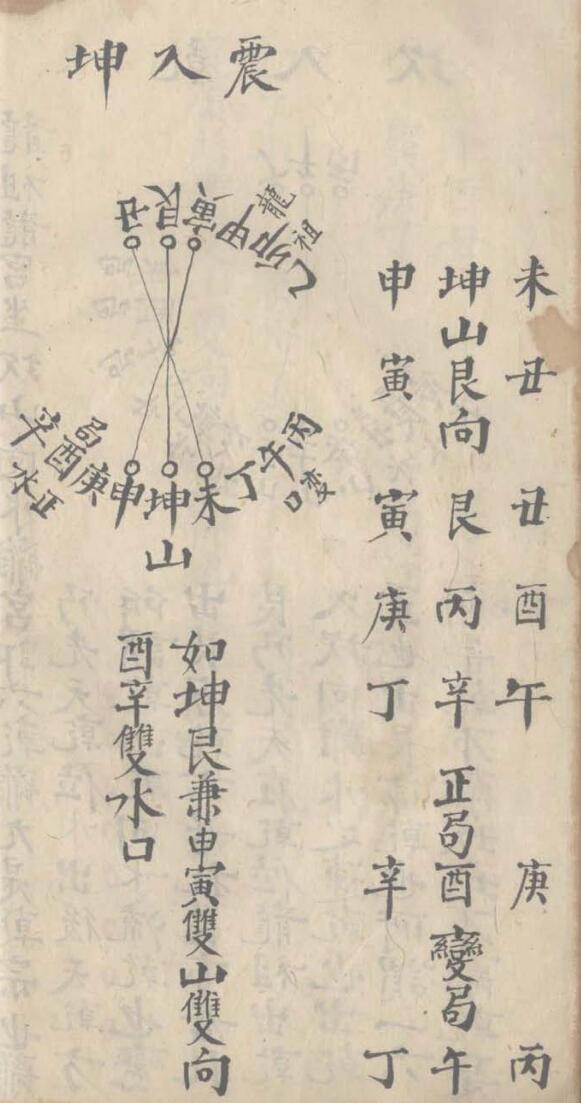 震入坤
未丑丑酉午庚丙
坤山艮向艮丙辛正局酉變局午
申寅寅庚丁辛丁
龍祖
甲卯乙
寅艮丑
丙午丁
変口
未坤申
山
庚酉辛
正局水
如坤艮兼申寅雙山雙向
酉辛雙水口